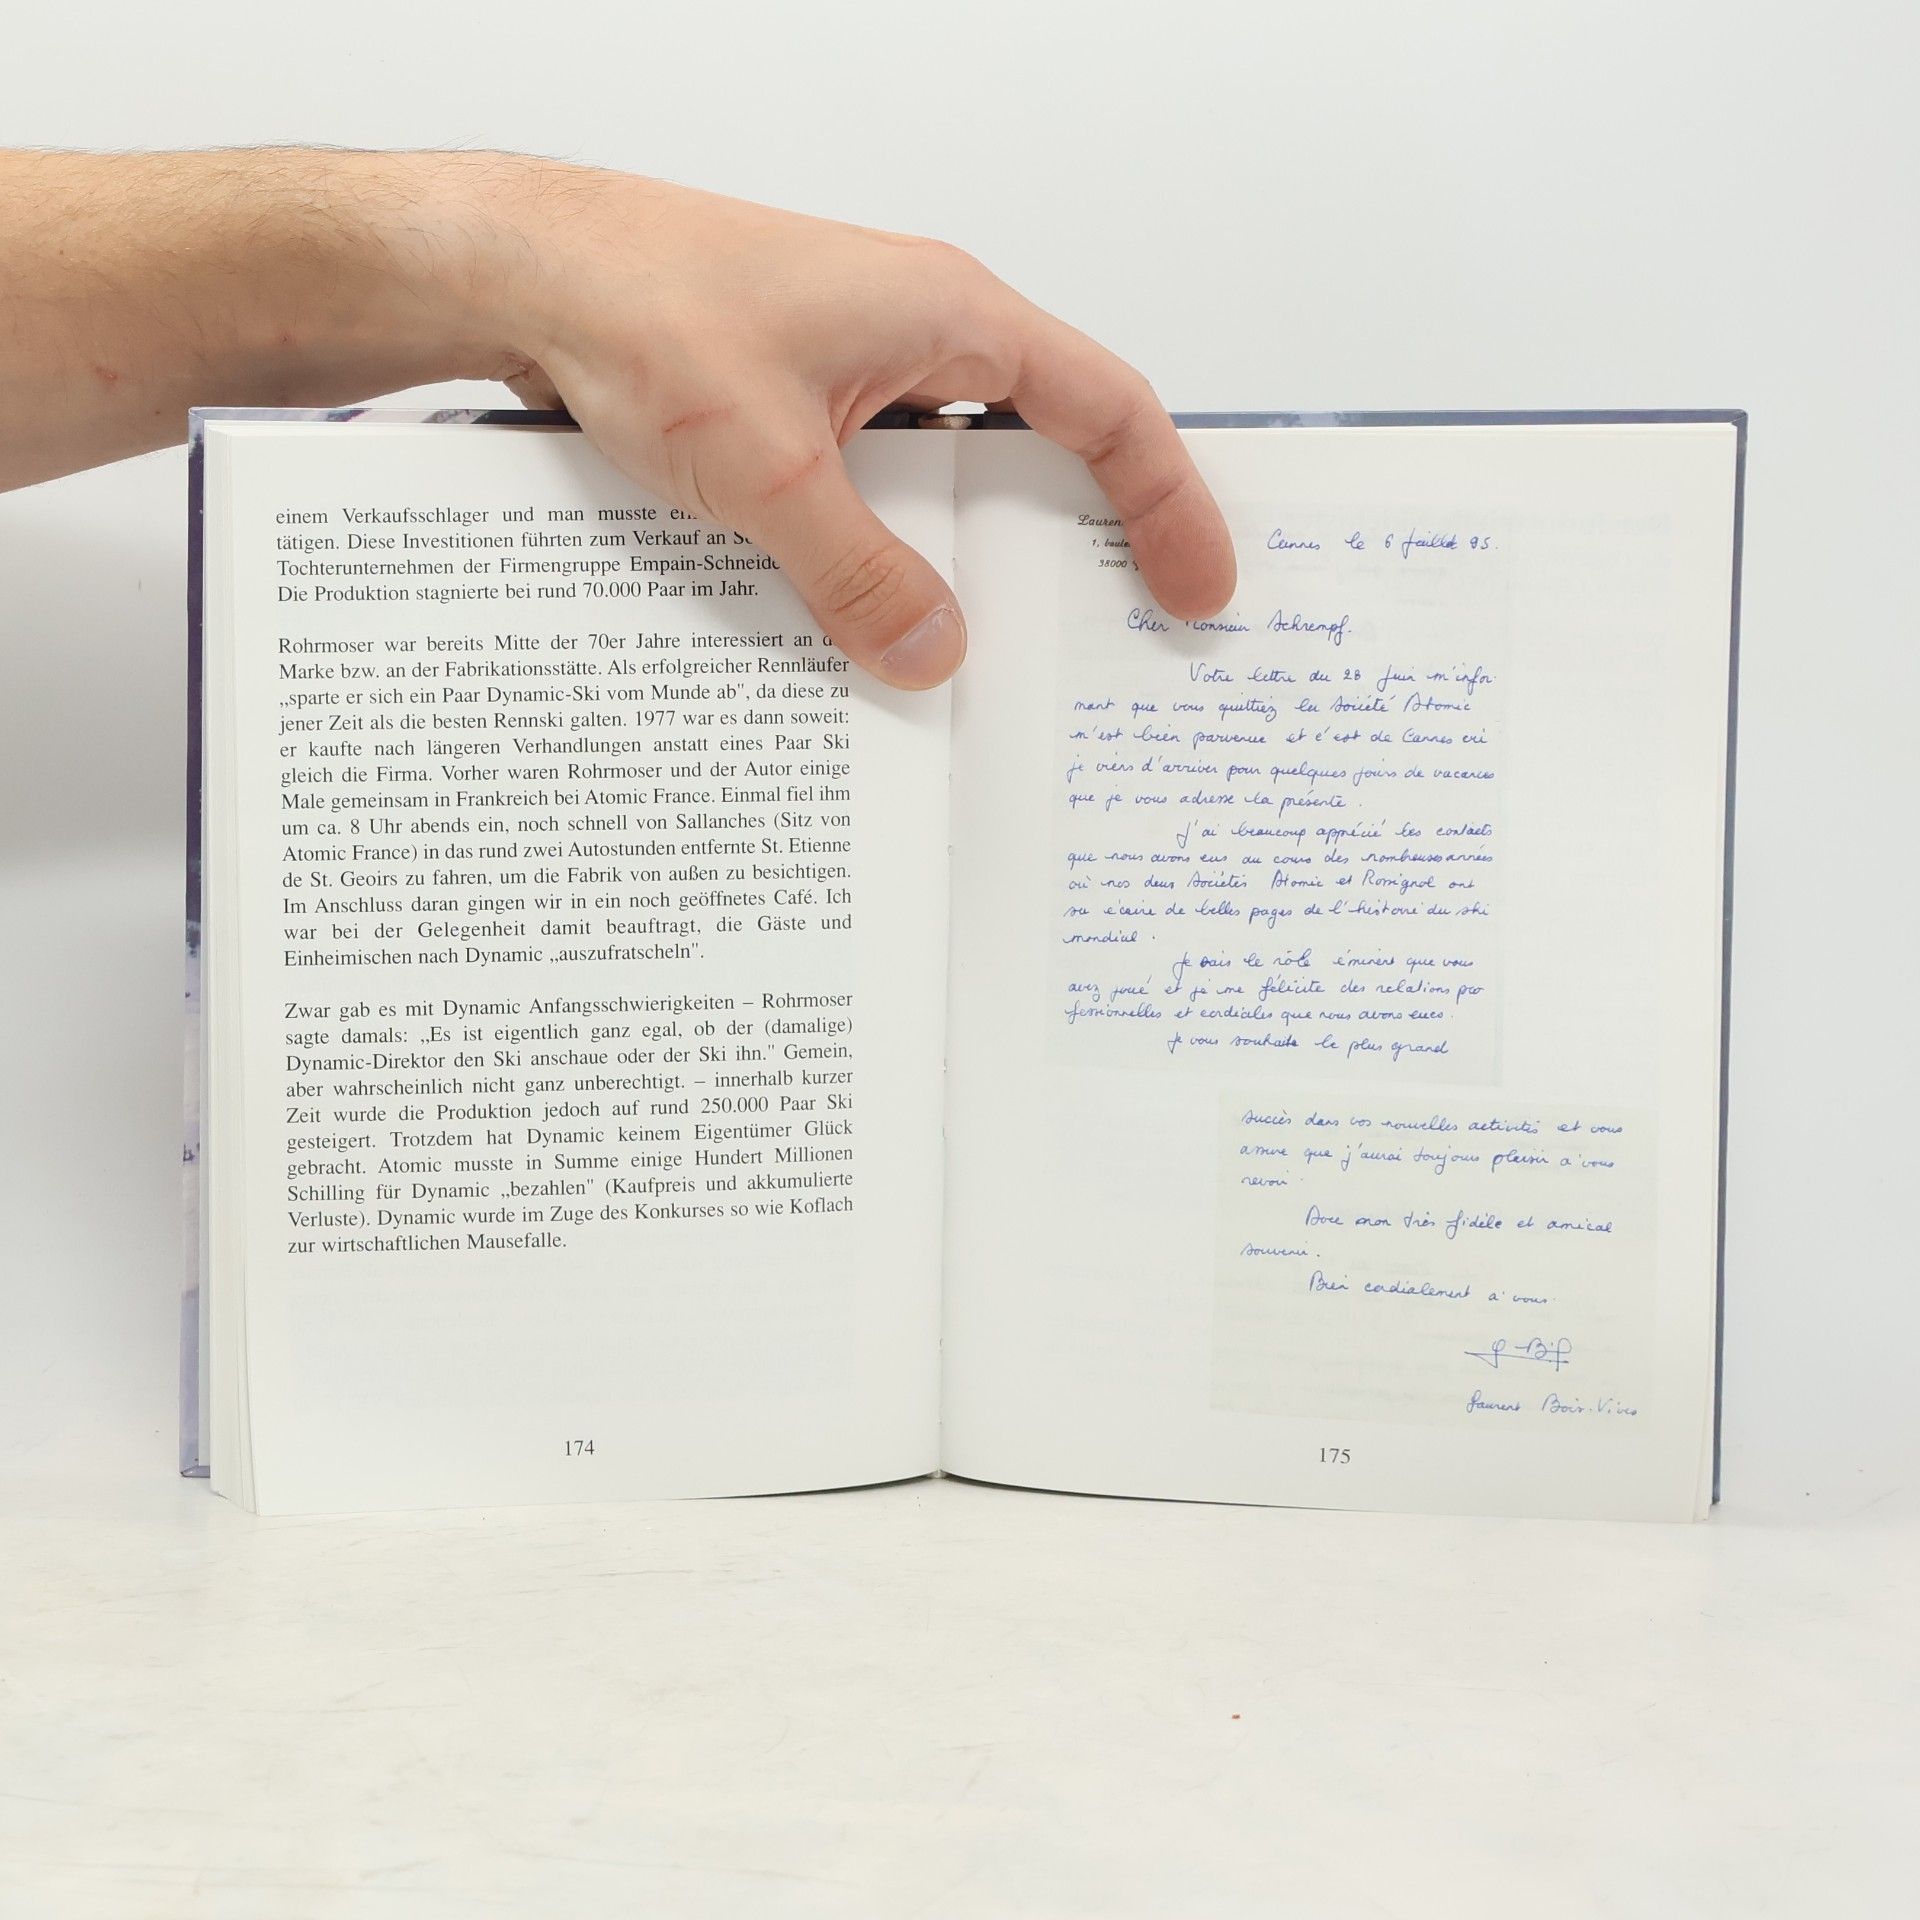 einem Verkaufsschlager und man musste
tätigen. Diese Investitionen führten zum Verkauf an
Tochterunternehmen der Firmengruppe
Die Produktion stagnierte bei rund 70.000 Paar im Jahr.
Rohrmoser war bereits Mitte der 70er Jahre interessiert an
Marke bzw. an der Fabrikationsstätte. Als erfolgreicher Rennläufer
„sparte er sich ein Paar Dynamic-Ski vom Munde ab", da diese zu
jener Zeit als die besten Rennski galten. 1977 war es dann soweit:
er kaufte nach längeren Verhandlungen anstatt eines Paar Ski
gleich die Firma. Vorher waren Rohrmoser und der Autor einige
Male gemeinsam in Frankreich bei Atomic France. Einmal fiel ihm
um ca. 8 Uhr abends ein, noch schnell von Sallanches (Sitz von
Atomic France) in das rund zwei Autostunden entfernte St. Etienne
de St. Geoirs zu fahren, um die Fabrik von außen zu besichtigen.
Im Anschluss daran gingen wir in ein noch geöffnetes Café. Ich
war bei der Gelegenheit damit beauftragt, die Gäste und
Einheimischen nach Dynamic „auszufratscheln".
Zwar gab es mit Dynamic Anfangsschwierigkeiten – Rohrmoser
sagte damals: „Es ist eigentlich ganz egal, ob der (damalige)
Dynamic-Direktor den Ski anschaue oder der Ski ihn." Gemein,
aber wahrscheinlich nicht ganz unberechtigt. – innerhalb kurzer
Zeit wurde die Produktion jedoch auf rund 250.000 Paar Ski
gesteigert. Trotzdem hat Dynamic keinem Eigentümer Glück
gebracht. Atomic musste in Summe einige Hundert Millionen
Schilling für Dynamic „bezahlen" (Kaufpreis und akkumulierte
Verluste). Dynamic wurde im Zuge des Konkurses so wie Koflach
zur wirtschaftlichen Mausefalle.
174
1,
38000
Cannes le 6 Juillet 95.
Cher Monsieur Schrempf.
Votre lettre du 28 Juin m'infor-
mant que vous quittiez la Société Atomic
m'est bien parvenue et c'est de Cannes où
je viens d'arriver pour quelques jours de vacances
que je vous adresse la présente.
J'ai beaucoup apprécié les contacts
que nous avons eus au cours des nombreuses années
où nos deux Sociétés Atomic et Rossignol ont
su écrire de belles pages de l'histoire du ski
mondial.
Je sais le rôle éminent que vous
avez joué et je me félicite des relations pro
fessionnelles et cordiales que nous avons eues.
Je vous souhaite le plus grand
succès dans vos nouvelles activités et vous
assure que j'aurai toujours plaisir à vous
revoir.
Avec mon très fidèle et amical
souvenir.
Bien cordialement à vous.
Laurent Boix-Vives
175